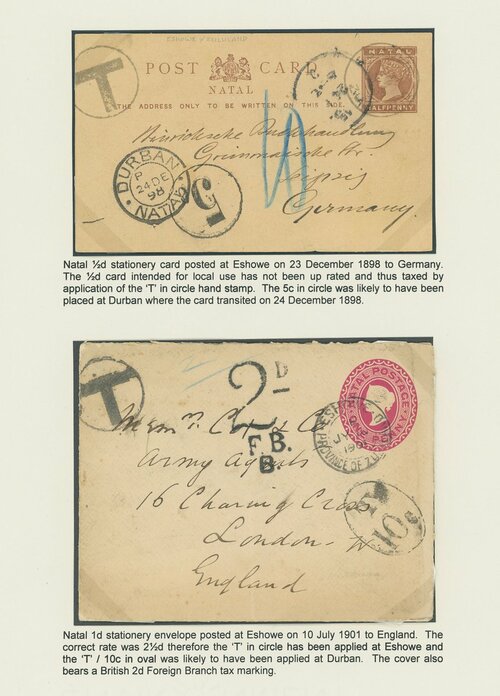 ESHOWE ZULULAND
T
POST CARD
NATAL
NATAL
HALFPENNY
THE ADDRESS ONLY TO BE WRITTEN ON THIS SIDE.
Hinrichssche Buchhandlung
Grimmaische Str.
Leipzig
Germany.
DURBAN
P
24 DE
98
NATAL
5
Natal ½d stationery card posted at Eshowe on 23 December 1898 to Germany.
The ½d card intended for local use has not been up rated and thus taxed by
application of the 'T' in circle hand stamp. The 5c in circle was likely to have been
placed at Durban where the card transited on 24 December 1898.
T
2D
F.B.
B.
NATAL POSTAGE
ONE PENNY
PROVINCE OF
Messrs. Cox & Co
Army Agents
16 Charing Cross
London
England
T
10
Natal 1d stationery envelope posted at Eshowe on 10 July 1901 to England. The
correct rate was 2½d therefore the 'T' in circle has been applied at Eshowe and
the 'T' / 10c in oval was likely to have been applied at Durban. The cover also
bears a British 2d Foreign Branch tax marking.